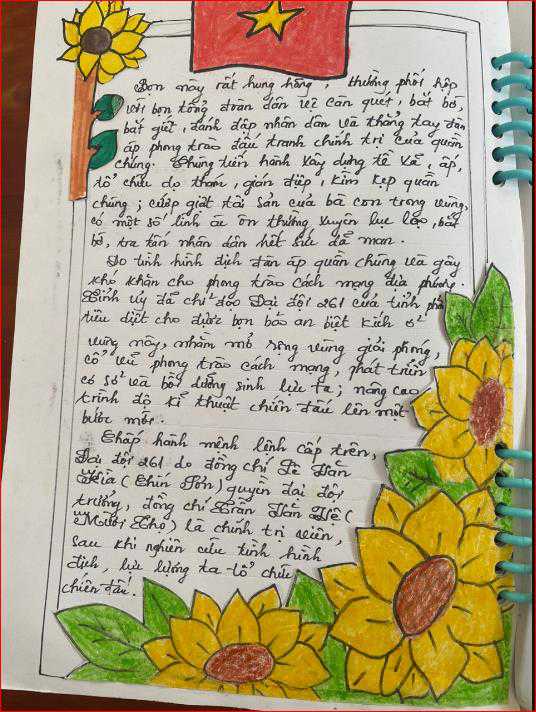 Bọn này rất hung hăng, thường phối hợp
với bọn tổng đoàn dân vệ càn quét, bắt bớ,
bắt giết, đánh đập nhân dân và thẳng tay đàn
áp phong trào đấu tranh chính trị của quần
chúng. Chúng tiến hành xây dựng tề xã, ấp,
tổ chức do thám, gián điệp, kìm kẹp quần
chúng; cướp giật tài sản của bà con trong vùng,
có một số lính ác ôn thường xuyên lục lạo, bắt
bớ, tra tấn nhân dân hết sức dã man.
Do tình hình địch đàn áp quần chúng và gây
khó khăn cho phong trào Cách mạng địa phương.
Tỉnh ủy đã chỉ đạo Đại đội 261 của tỉnh phải
tiêu diệt cho được bọn bảo an biệt kích ở
vùng này, nhằm mở rộng vùng giải phóng,
cổ vũ phong trào cách mạng, phát triển
cơ sở và bồi dưỡng sinh lực ta; nâng cao
trình độ kĩ thuật chiến đấu lên một
bước mới.
Chấp hành mệnh lệnh cấp trên,
Đại đội 261 do đồng chí Lê Văn
(Chín Tơn) quyền đại đội
trưởng, đồng chí Trần Văn Hệ (
Mười Thọ) là chính trị viên,
sau khi nghiên cứu tình hình
địch, lực lượng ta tổ chức
chiến đấu.